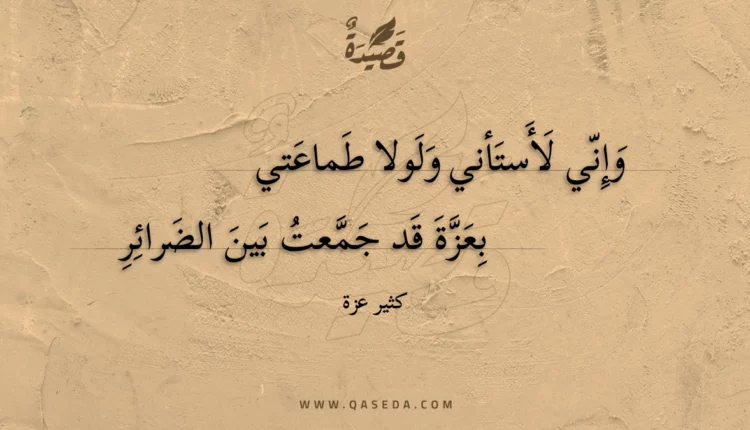 قَصِيدَةٌ
وَإِنّي لَأَستَأني وَلَولا طَماعَتي
بِعَزَّةَ قَد جَمَّعتُ بَينَ الضَرائِرِ
كثير عزة
WWW.QASEDA.COM